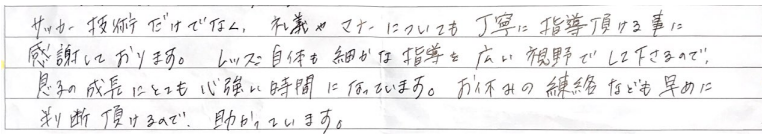 サッカー技術だけでなく、礼義やマナーについても丁寧に指導頂ける事に
感謝しております。レッスン自体も細かな指導を広い視野でして下さるので、
息子の成長にとても心強い時間になっています。お休みの練絡なども早めに
判断頂けるので、助かっています。